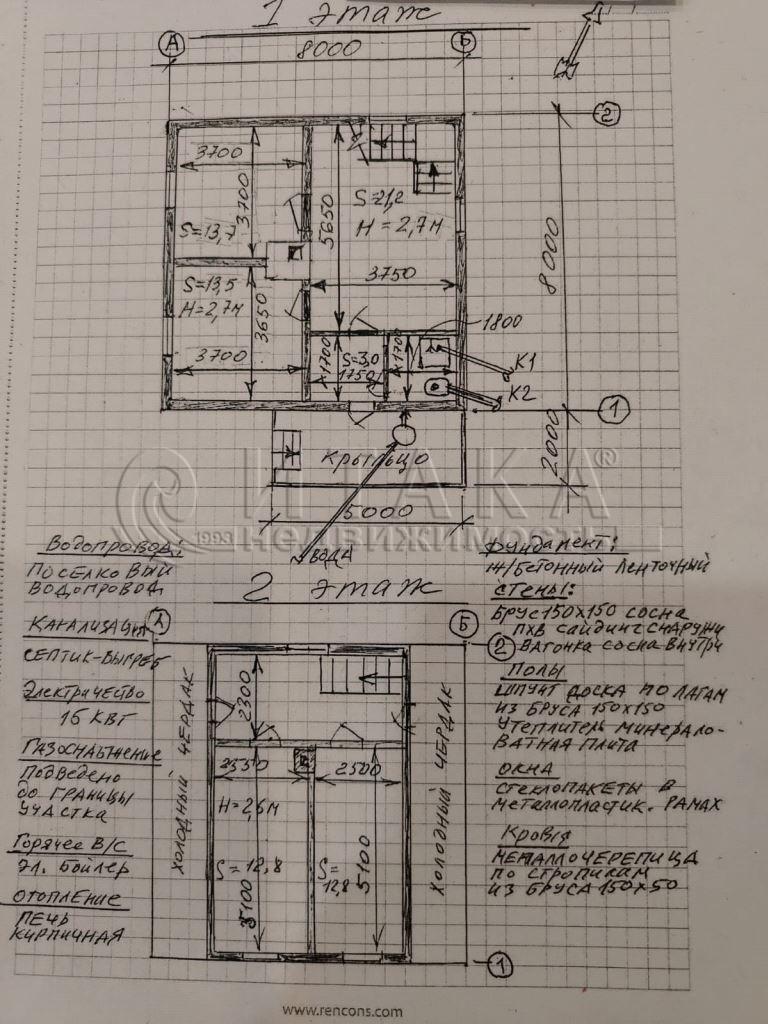 1 этаж
А
Б
8000
2
3700
3700
S=13,7
5650
S=21,2
H=2,7м
3750
8000
S=13,5
H=2,7м
3650
3700
1700
S=3,0
1750
1700
1800
К1
К2
1
2000
крыльцо
ИТАКА®
1993
5000
вода
2 этаж
Водопровод:
Поселковый
водопровод
Канализация:
Септик-выгреб
Электричество
15 кВт
Газоснабжение
Подведено
до границы
участка
Горячее В/С
Эл. Бойлер
Отопление
Печь
кирпичная
А
Б
2
2300
Холодный чердак
Холодный чердак
2550
2500
H=2,6м
S=12,8
5100
S=
12,8
5100
1
Фундамент:
Ж/бетонный ленточный
Стены:
Брус 150х150 сосна
ПХВ сайдинг снаружи
Вагонка сосна внутри
Полы
Шпунт доска по лагам
из бруса 150х150
Утеплитель минерало-
ватная плита
Окна
Стеклопакеты в
металлопластик. рамах
Кровля
Металлочерепица
по стропилам
из бруса 150х50
www.rencons.com